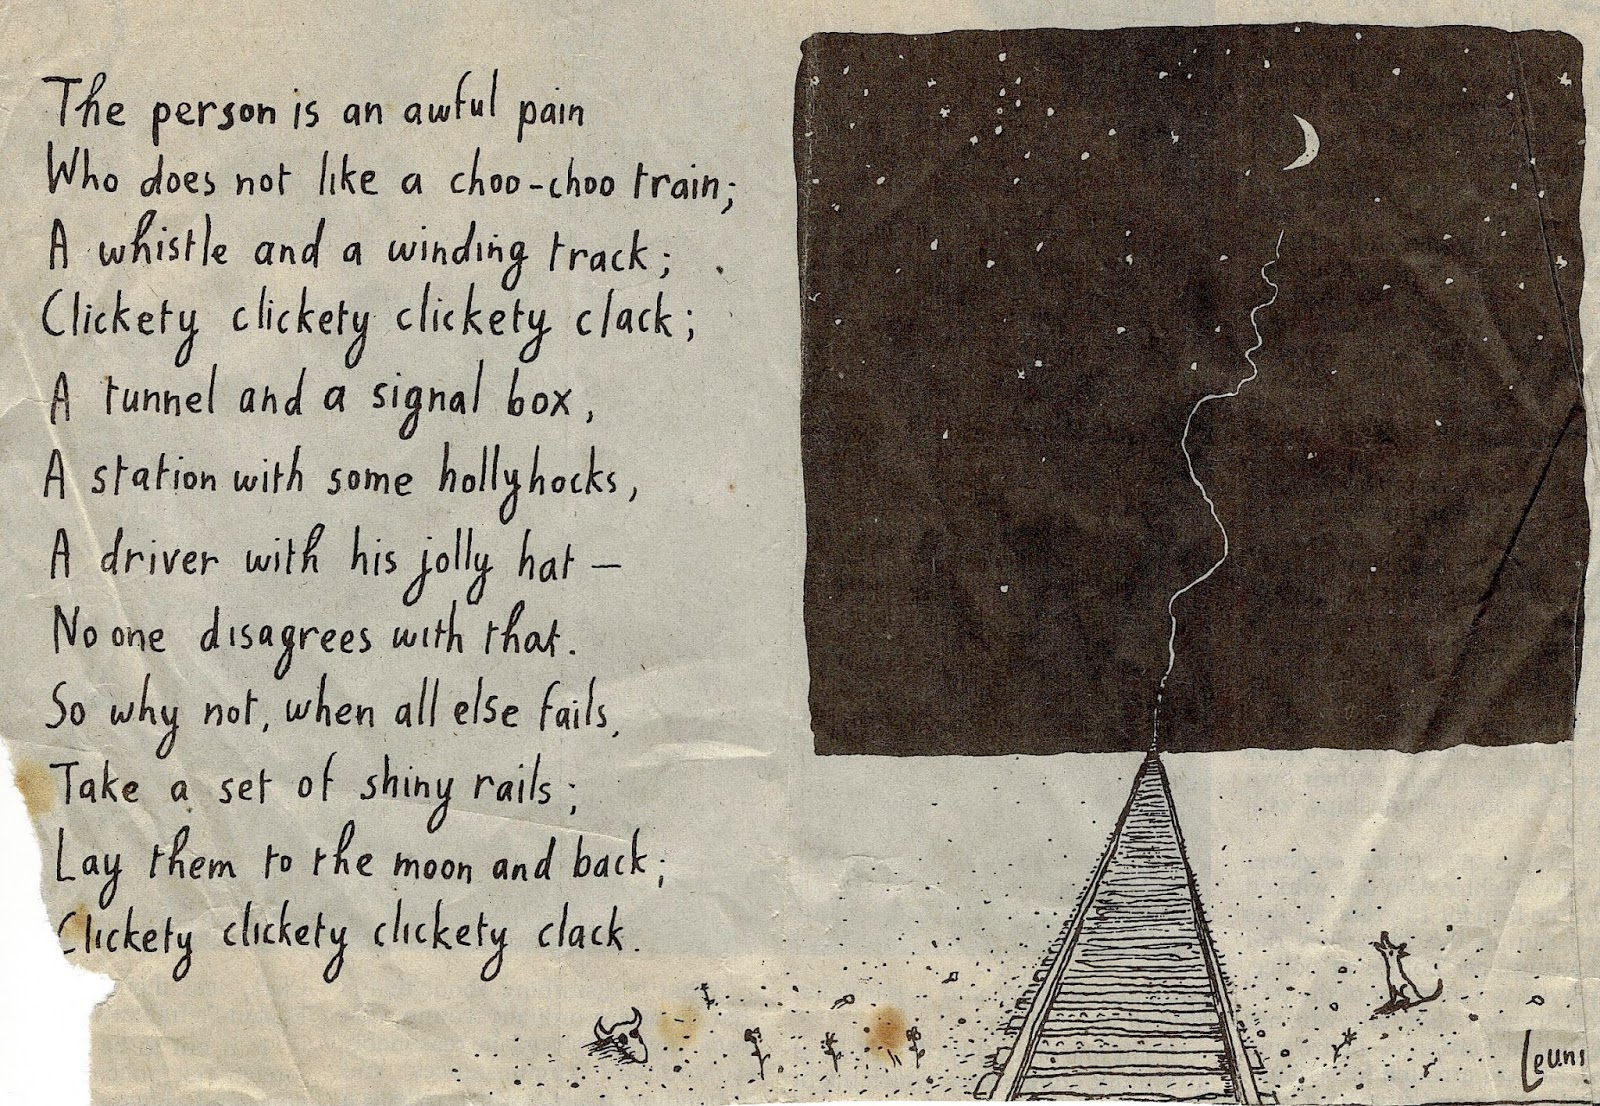 The person is an awful pain
Who does not like a choo-choo train;
A whistle and a winding track;
Clickety clickety clickety clack;
A tunnel and a signal box,
A station with some hollyhocks,
A driver with his jolly hat —
No one disagrees with that.
So why not, when all else fails,
Take a set of shiny rails;
Lay them to the moon and back;
Clickety clickety clickety clack.
Leunig